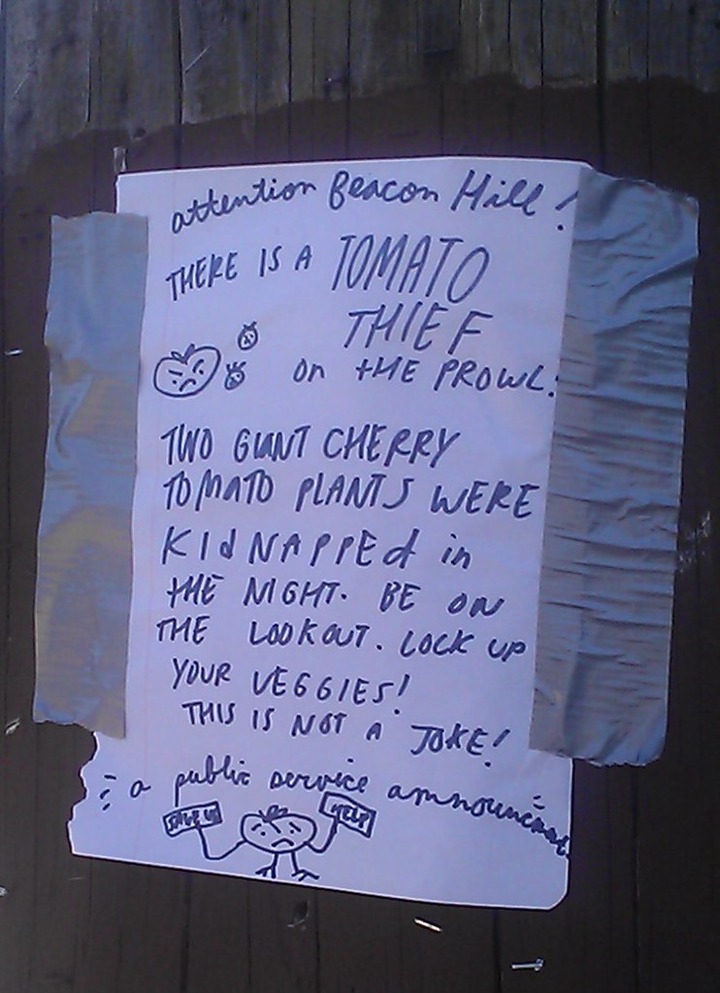 attention Beacon Hill!
THERE IS A TOMATO
THIEF
on tHE PROWL!
TWO GIANT CHERRY
TOMATO PLANTS WERE
KIdNAPPEd in
tHE NIGHT. BE ON
THE LOOKOUT. LOCK UP
YOUR VEGGIES!
THIS IS NOT A JOKE!
a public service announcement
SAVE US
HELP